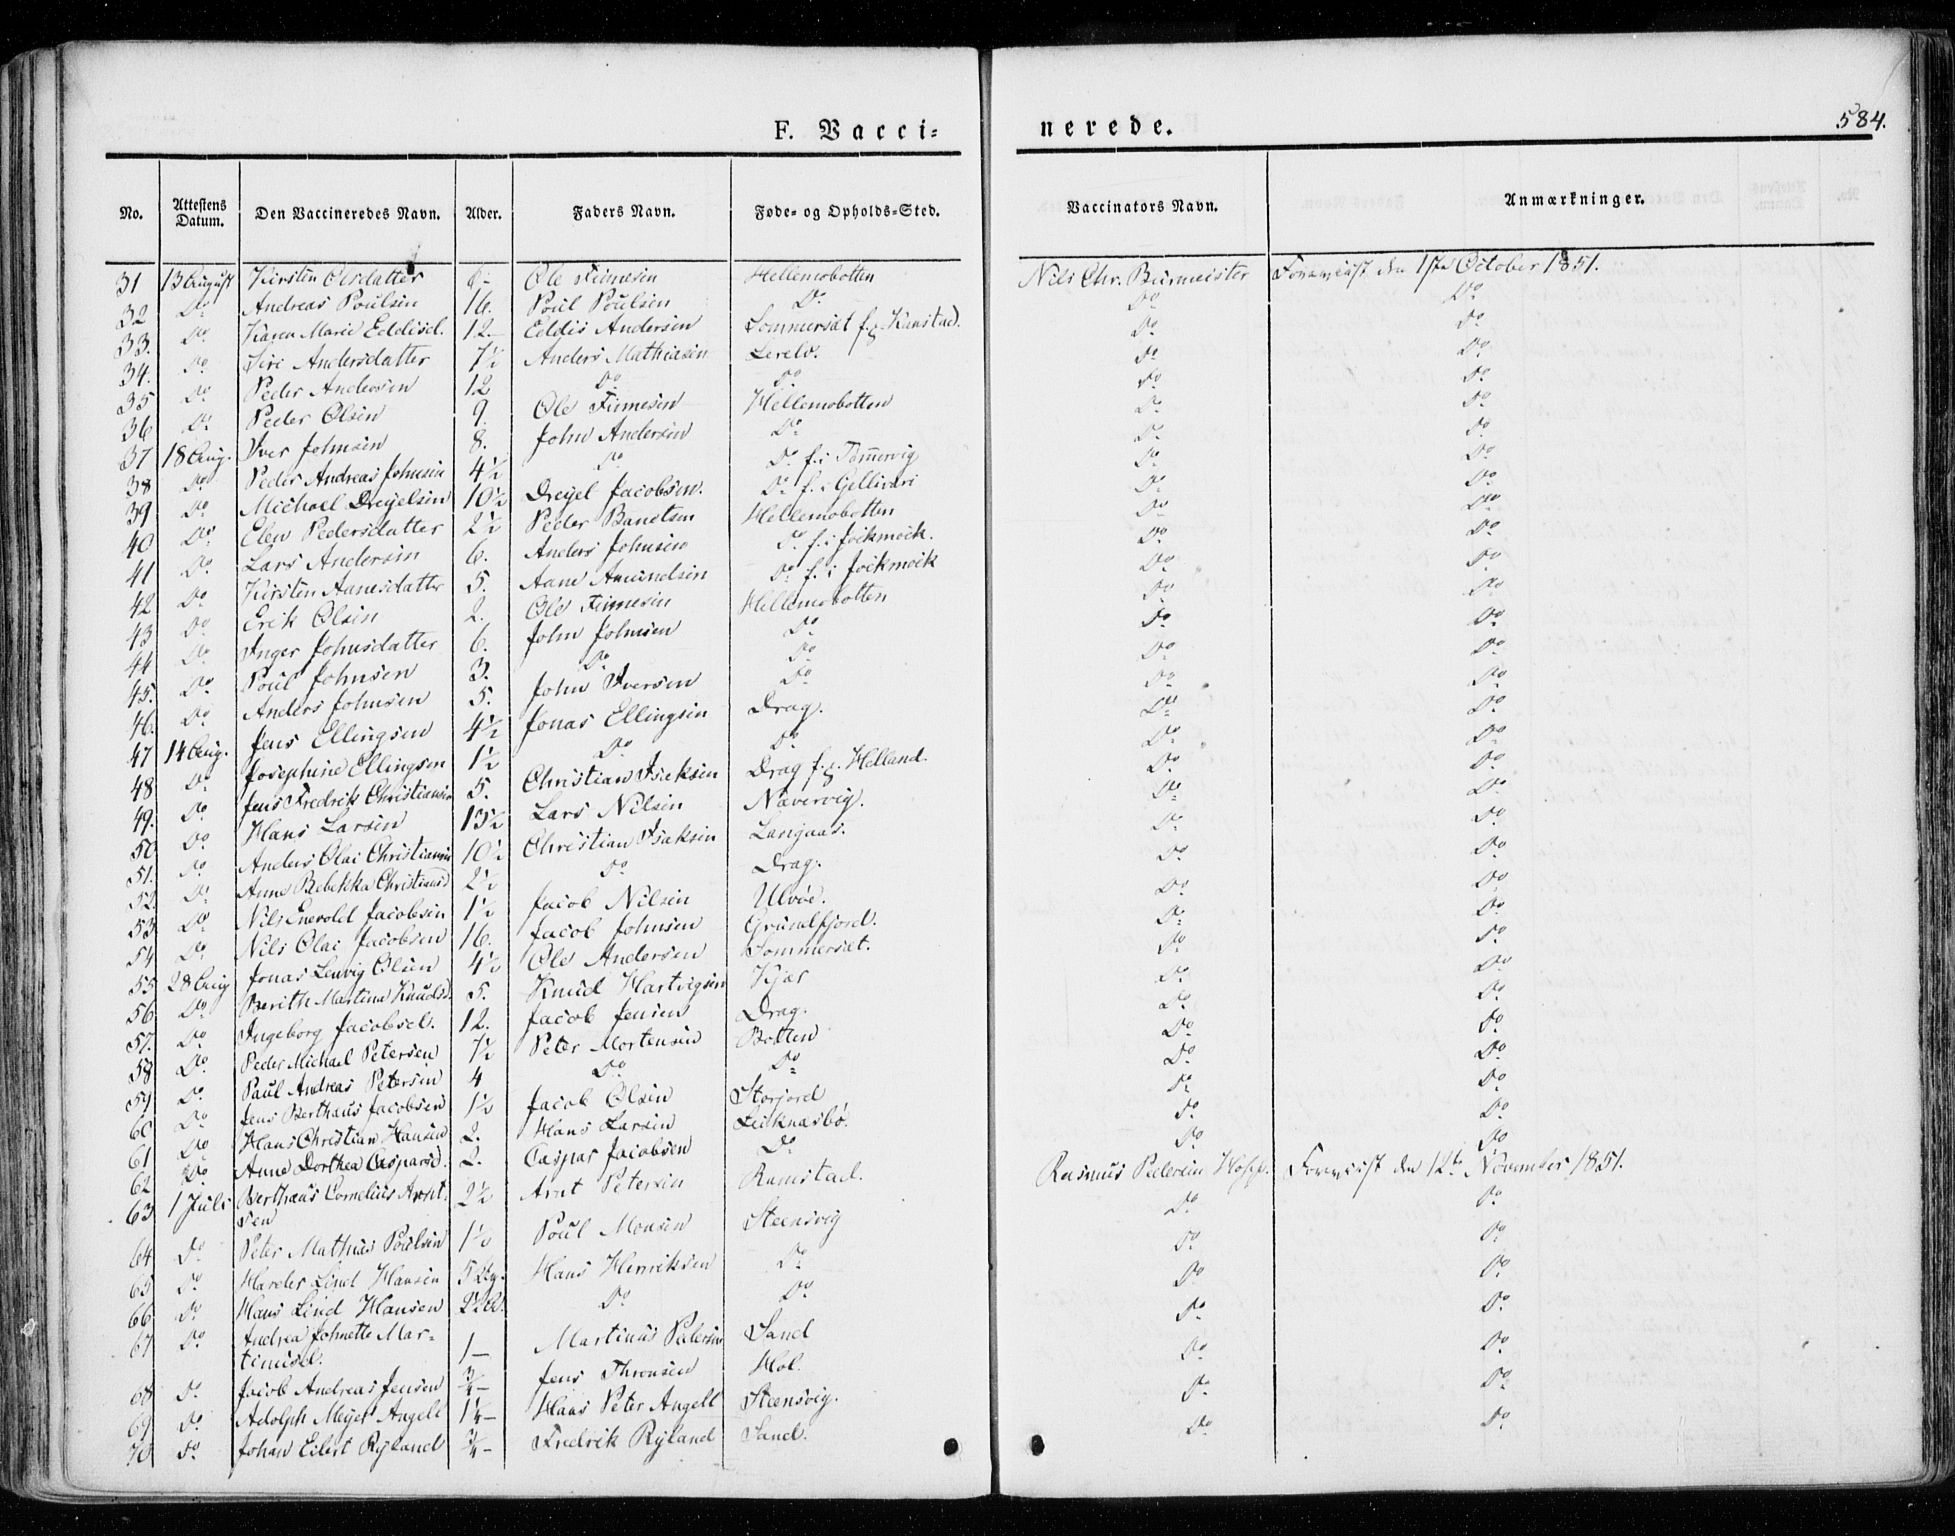 F. Vacci-
nerede.
584.
No. Attestens Datum. Den Vaccineredes Navn. Alder. Faders Navn. Føde- og Opholds-Sted. Vaccinators Navn. Anmærkninger.
31 13 August Kirsten Olsdatter 6- Ole Finnesen Hellemobotten Nils Chr. Burmeister Foreviist den 1ste October 1851.
32 Do Andreas Poulsen 16. Poul Poulsen Do Do Do
33. Do Karen Marie Eddisd. 12- Eddis Andersen Sommersæt f. Kanstad. Do Do
34. Do Siri Andersdatter 7½ Anders Mathiesen Lerelv. Do Do
35 Do Peder Andersen 12 Do Do Do Do
36 Do Peder Olsen 9 Ole Finnesen Hellemobotten Do Do
37 18 Aug. Iver Johnsen 8. John Andersen Do Do Do
38 Do Peder Andreas Johnsen 4½ Do Do f. i Tømmervig Do Do
39 Do Michael Dregelsen 10½ Dregel Jacobsen. Do f. i Gellivari Do Do
40 Do Elen Pedersdatter 2½ Peder Bandtsen Hellemobotten Do Do
41 Do Lars Andersen 6. Anders Johnsen Do f. i Jockmock. Do Do
42 Do Kirsten Aanesdatter 5. Aane Amundsen Do f. i Jockmock Do Do
43 Do Erik Olsen 2. Ole Finnesen Hellemobotten Do Do
44 Do Inger Johnsdatter 6. John Johnsen Do Do Do
45. Do Poul Johnsen 3. Do Do Do Do
46. Do Anders Johnsen 5. John Iversen Do Do Do
47 14 Aug. Jens Ellingsen 4½ Jonas Ellingsen Drag. Do Do
48 Do Josephine Ellingsen 1½ Do Do Do Do
49. Do Jens Fredrik Christiansen 5. Christian Isaksen Drag f. Helland. Do Do
50 Do Hans Larsen 13½ Lars Nilsen Nævervig. Do Do
51. Do Anders Olai Christiansen 10½ Christian Isaksen Langaas. Do Do
52. Do Anne Rebekka Christiansd 2½ Do Drag. Do Do
53 Do Nils Enevold Jacobsen 1½ Jacob Nilsen Ulvøe. Do Do
54 Do Nils Olai Jacobsen 16. Jacob Johnsen Grundfjord. Do Do
55 28 Aug Jonas Ledvig Olsen 4½ Ole Andersen Sommersæt. Do Do
56 Do Berith Martine Knudsd. 5. Knud Hartvigsen Kjær Do Do
57. Do Ingeborg Jacobsd. 12. Jacob Jensen Drag. Do Do
58 Do Peder Michael Petersen 7½ Peter Mortensen Botten Do Do
59 Do Paul Andreas Petersen 4 Do Do Do Do
60 Do Jens Berthæus Jacobsen 1½ Jacob Olsen Storjord Do Do
61 Do Hans Christian Hansen 2. Hans Larsen Leiknæsbø. Do Do
62 Do Anne Dorthea Caspersd. 2. Caspar Jacobsen Do Do Do
63 1 Juli Berthæus Cornelius Arnt-
sen 2½ Arnt Petersen Ramstad. Rasmus Pedersen Foreviist den 12te November 1851.
64 Do Peter Mathias Poulsen 1½ Poul Monsen Steensvig Do Do
65 Do Harder Lind Hansen 5 Hans Henriksen Do Do Do
66 Do Hans Lind Hansen 2½ Do Do Do Do
67 Do Andrea Johnette Mar-
tinusd. 1- Martinus Pedersen Sand Do Do
68 Do Jacob Andreas Jensen ¾- Jens Thronsen Hol. Do Do
69 Do Adolph Meyer Angell 1¼- Hans Peter Angell Steensvig. Do Do
70 Do Johan Eilert Ryland ¾- Fredrik Ryland Sand. Do Do